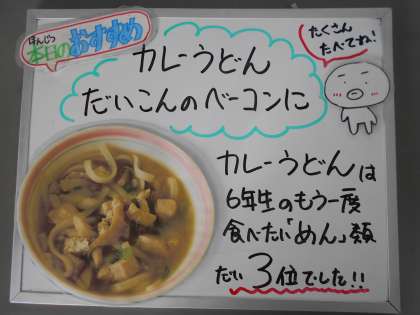 ほんじつ
本日のおすすめ
たくさん
たべてね!
カレーうどん
だいこんのベーコンに
カレーうどんは
6年生のもう一度
食べたい「めん」類
だい3位でした!!